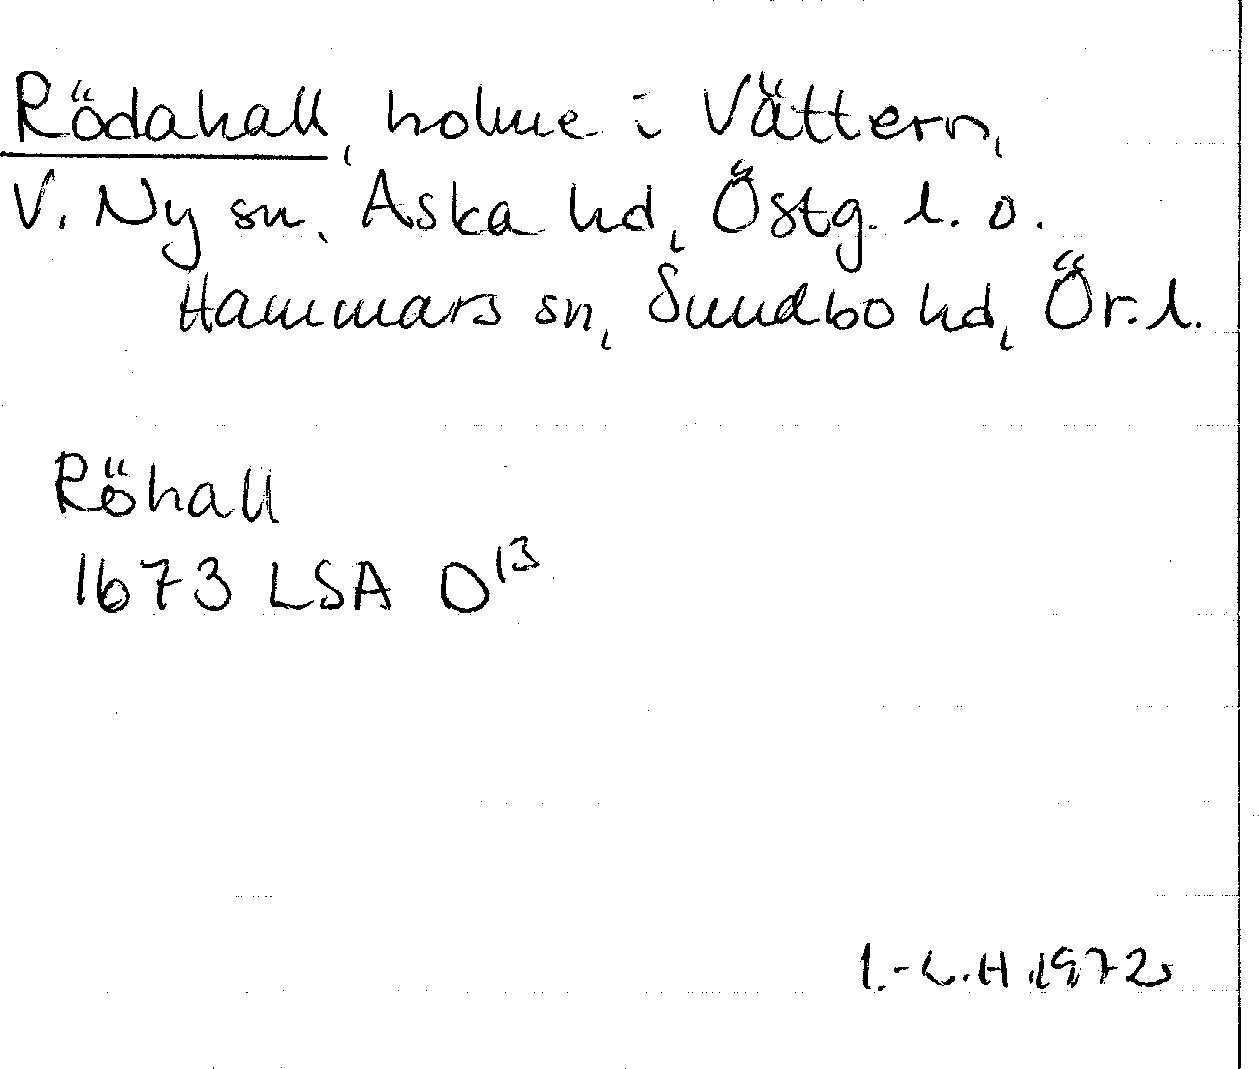 Rödahall, holme i Vättern,
V. Ny sn, Aska hd, Östg. l. o.
Hammars sn, Sundbo hd, Ör. l.
Röhall
1673 LSA O¹³
I.-L.H 1972